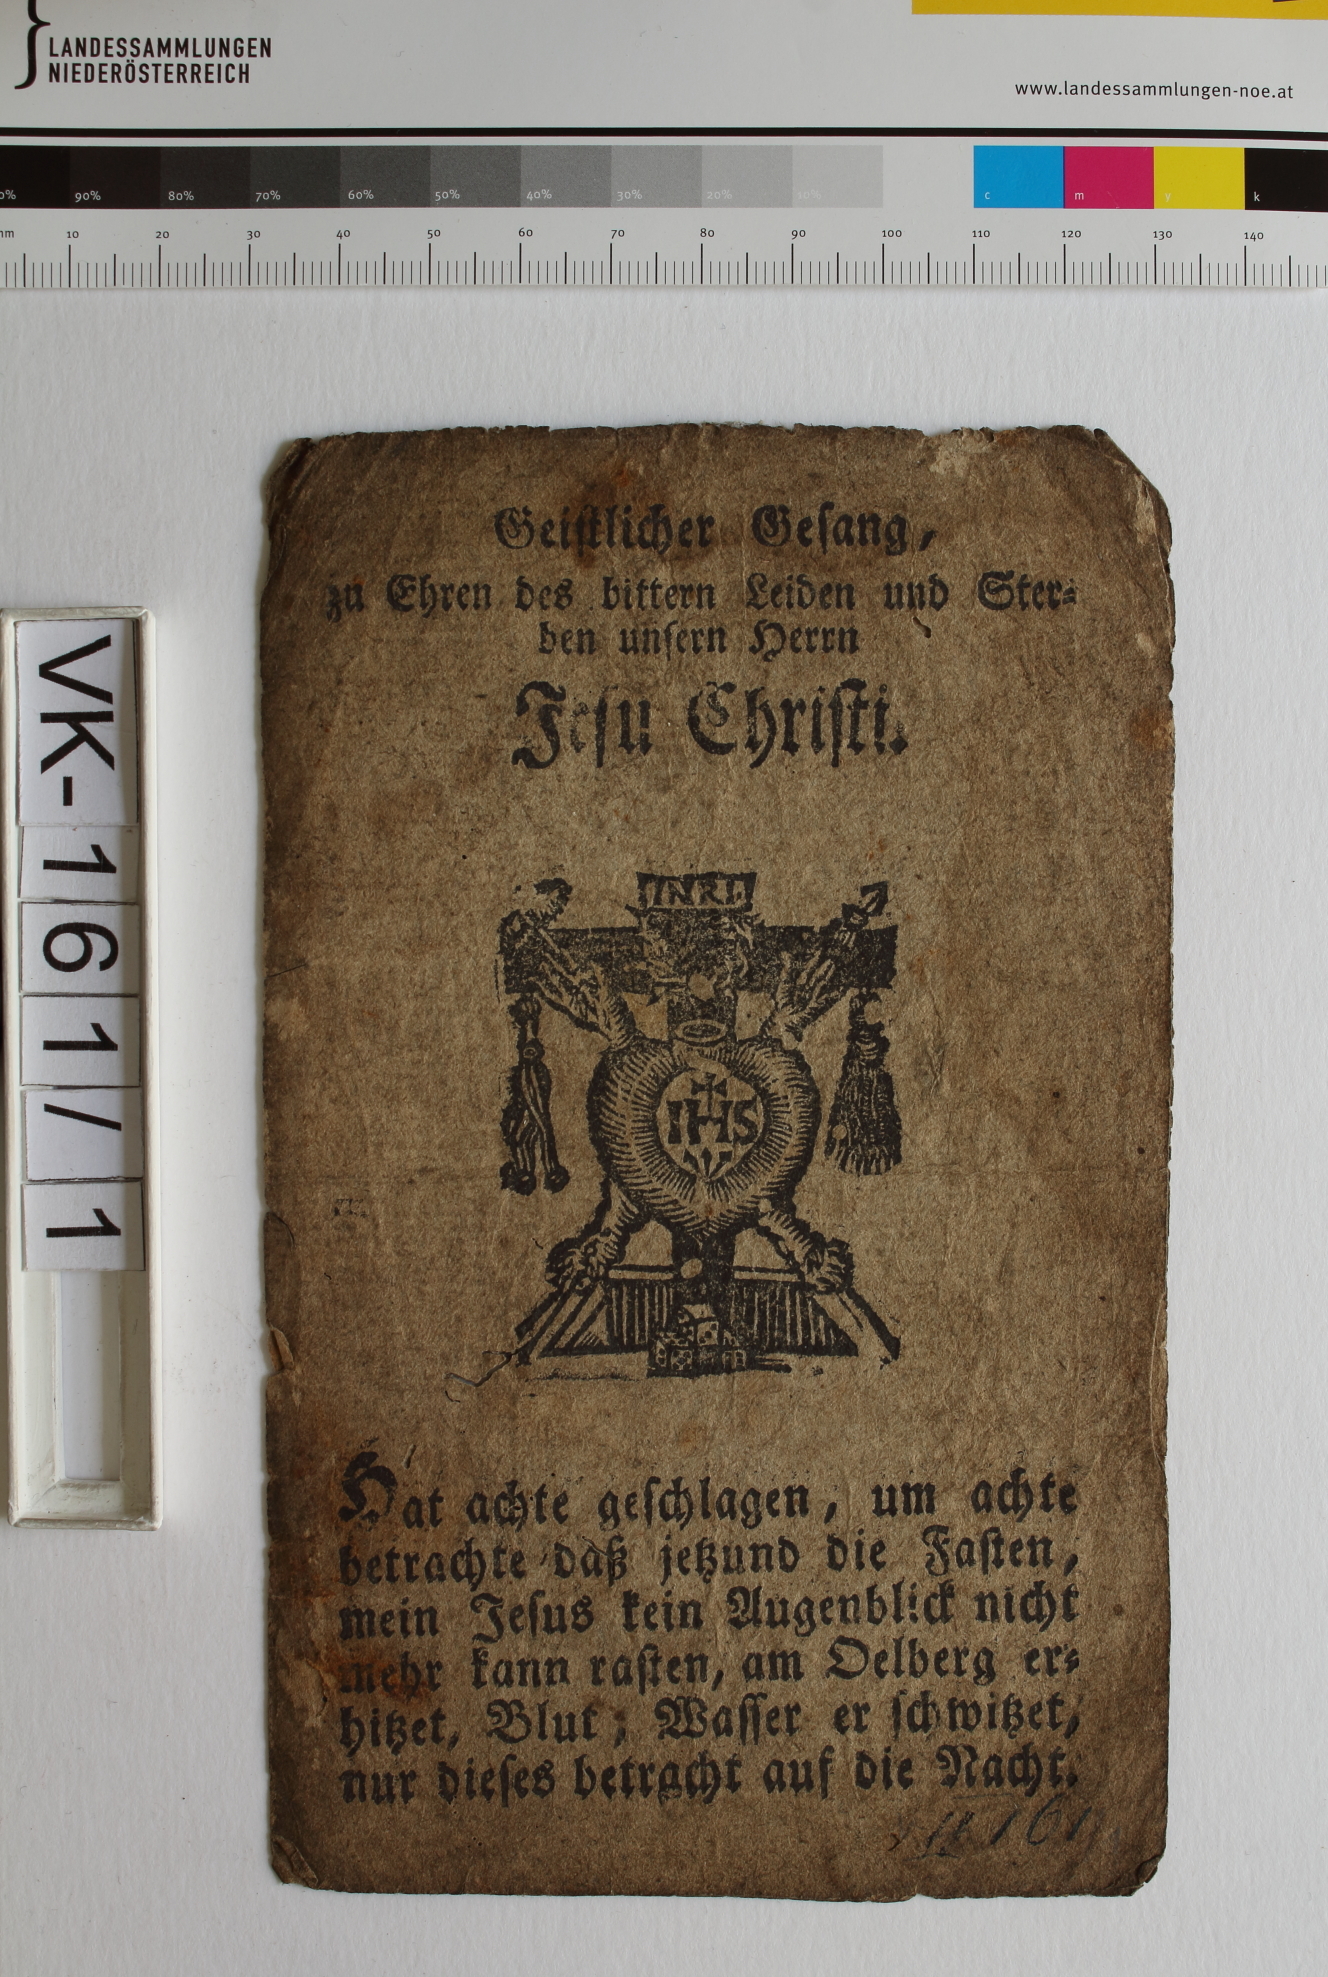 LANDESSAMMLUNGEN
NIEDERÖSTERREICH
www.landessammlungen-noe.at
90% 80% 70% 60% 50% 40% 30% 20% 10% c m y k
10 20 30 40 50 60 70 80 90 100 110 120 130 140
VK-161/1
Geistlicher Gesang,
zu Ehren des bittern Leiden und Ster-
ben unsern Herrn
Jesu Christi.
INRI
IHS
Hat achte geschlagen, um achte
betrachte daß jetzund die Fasten,
mein Jesus kein Augenblick nicht
mehr kann rasten, am Oelberg er-
hitzet, Blut, Wasser er schwitzet,
nur dieses betracht auf die Nacht.
161